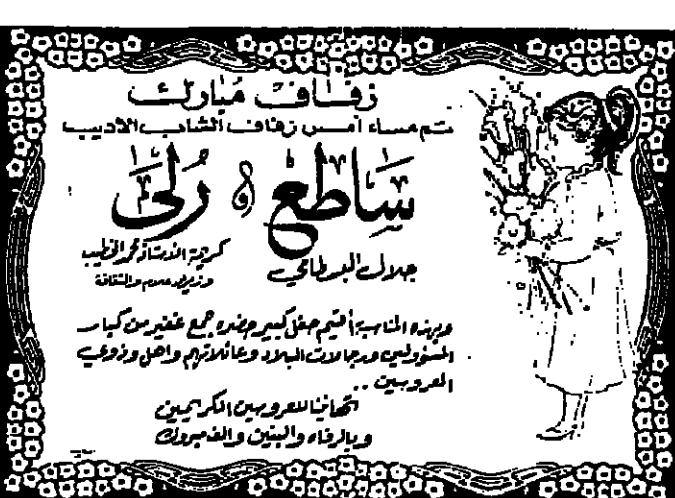 زفاف مبارك
تم مساء أمس زفاف الشاب الأديب
ساطع و رُلى
جلال البسطامي
كريمة الأستاذ محمد الخطيب
وزير الإعلام والثقافة
وبهذه المناسبة أقيم حفل كبير حضره جمع غفير من كبار
المسؤولين ورجالات البلاد وعائلاتهم وأهل وذوي
العروسين ..
تهانينا للعروسين الكريمين
وبالرفاء والبنين وألف مبروك